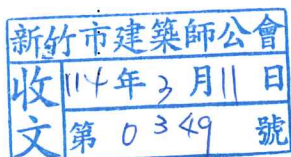 新竹市建築師公會
收文
114年3月11日
第0349號